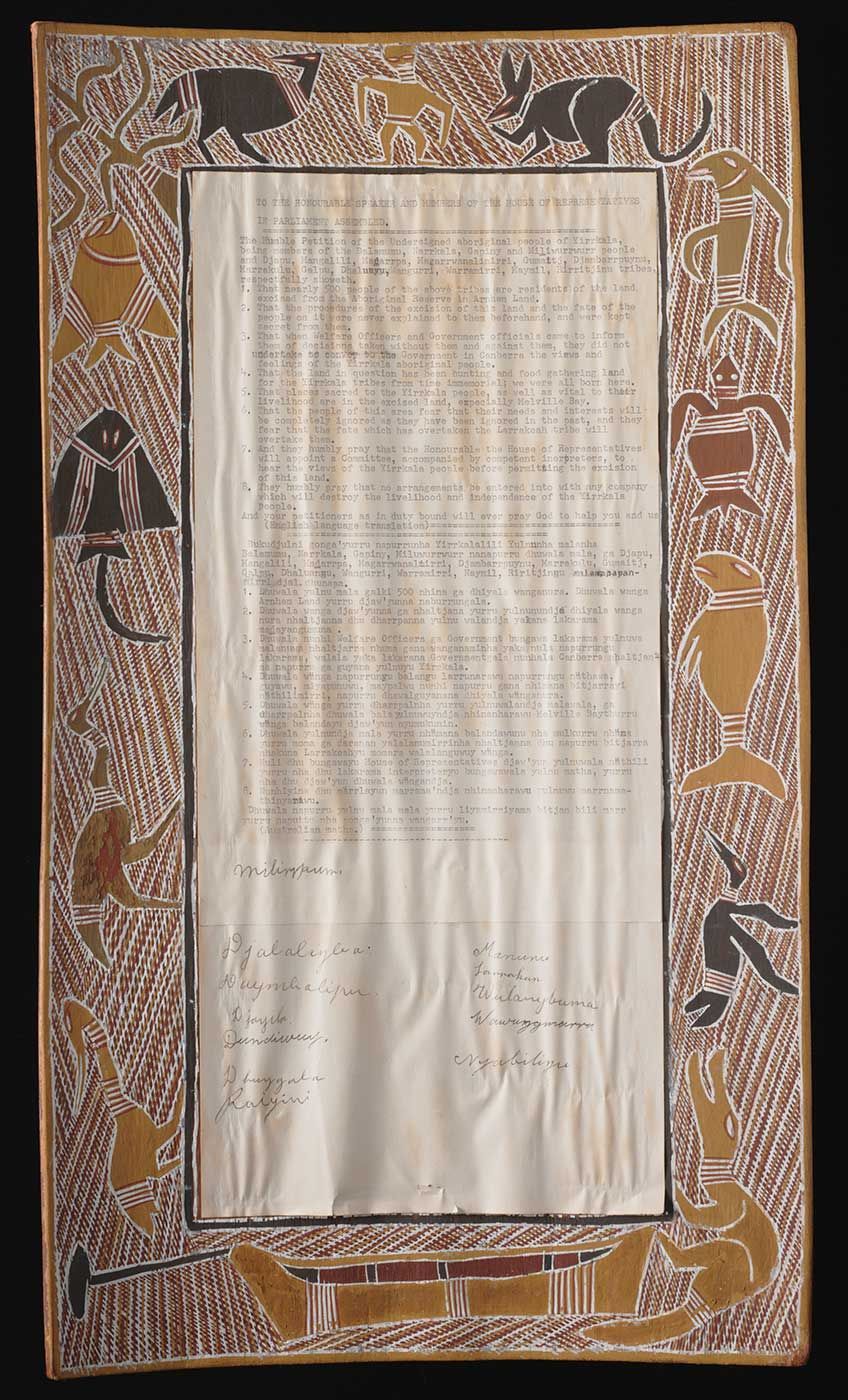 TO THE HONOURABLE SPEAKER AND MEMBERS OF THE HOUSE OF REPRESENTATIVES
IN PARLIAMENT ASSEMBLED.
The Humble Petition of the Undersigned aboriginal people of Yirrkala,
being members of the Balamumu, Narrkala, Gapiny and Miliwurrwurr people
and Djapu, Mangalili, Madarrpa, Magarrwanalinirri, Gumaitj, Djambarrpuynu,
Marrakulu, Galpu, Dhaluayu, Wangurri, Warramirri, Maymil, Rirritjinu tribes,
respectfully sheweth.
1. That nearly 500 people of the above tribes are residents of the land
excised from the Aboriginal Reserve in Arnhem Land.
2. That the procedures of the excision of this land and the fate of the
people on it were never explained to them beforehand, and were kept
secret from them.
3. That when Welfare Officers and Government officials came to inform
them of decisions taken without them and against them, they did not
undertake to convey to the Government in Canberra the views and
feelings of the Yirrkala aboriginal people.
4. That the land in question has been hunting and food gathering land
for the Yirrkala tribes from time immemorial; we were all born here.
5. That places sacred to the Yirrkala people, as well as vital to their
livelihood are in the excised land, especially Melville Bay.
6. That the people of this area fear that their needs and interests will
be completely ignored as they have been ignored in the past, and they
fear that the fate which has overtaken the Larrakeah tribe will
overtake them.
7. And they humbly pray that the Honourable the House of Representatives
will appoint a Committee, accompanied by competent interpreters, to
hear the views of the Yirrkala people before permitting the excision
of this land.
8. They humbly pray that no arrangements be entered into with any company
which will destroy the livelihood and independence of the Yirrkala
people.
And your petitioners as in duty bound will ever pray God to help you and us
(English language translation)
Bukudjulni gonga'yurru napurrunha Yirrkalalili Yulnunha malanha
Balamumu, Narrkala, Gapiny, Miliwurrwurr nanapurru dhuwala mala, ga Djapu,
Mangalili, Madarrpa, Magarrwanalmirri, Djambarrpuynu, Marrakulu, Gumaitj,
Galpu, Dhaluangu, Wangurri, Warramirri, Maymil, Riritjingu
djal dhunapa.
1. Dhuwala yulnu mala galki 500 nhina ga dhiyala wanganura. Dhuwala wanga
Arnhem Land yurru djaw'yunna naburrungala.
2. Dhuwala wanga djaw'yunna ga nhaltjana yurru yulnunundja dhiyala wanga
nura nhaltjanna dhu dharrpanna yulnu walandja yakana lakarama
madayangumuna.
3. Dhuwala nunhi Welfare Officers ga Government bungawa lakarama yulnuwa
malanuwa nhaltjarra nhuma gana wanganaminha yaka nula napurrungu
lakarama, walala yaka lakarama Governmentgala nunhala Canberra nhaltjan
ga napurr ga guyana yulnuyu Yirrkala.
4. Dhuwala wanga napurrungu balangu larrunarawu napurrungu nathawa,
guyawu, miyapunuwu, maypalwu nunhi napurru gana nhinana bitjarrayi
nathilimirri, napurru dhawalguyanana dhiyala wanganura.
5. Dhuwala wanga yurru dharrpalnha yurru yulnuwalandja malawala, ga
dharrpalnha dhuwala bala yulnuwuyndja nhinanharawu Melville Baythurru
wanga balandayu djaw'yun nyumukunin.
6. Dhuwala yulnundja mala yurru nhamana balandawunu nha mulkurru nhama
yurru moma ga daranan yalalanumirrinha nhaltjanna dhu napurru bitjarra
nhakuna Larrakeahyu momara walalanguwuy wanga.
7. Nuli dhu bungawayu House of Representatives djaw'yun yulnuwala nathili
yurru nha dhu lakarama interpreteryu bungawawala yulnu matha, yurru
nha dhu djaw'yun dhuwala wangandja.
8. Nunhiyina dhu marrlayun marrama'ndja nhinanharawu yulnuwu marrnama-
thinyarawu.
Dhuwala napurru yulnu mala mala yurru liyamirriyama bitjan bili marr
yurru napurru nha gonga'yunna wangarr'yu.
(Australian matha.)
Milirrpum.
Djalalingba.
Manunu
Larrakan
Daymbalipu.
Wulanybuma
Djayila.
Wawunymarra
Dundiwuy.
Nyabilingu
Dhuygala
Raiyini